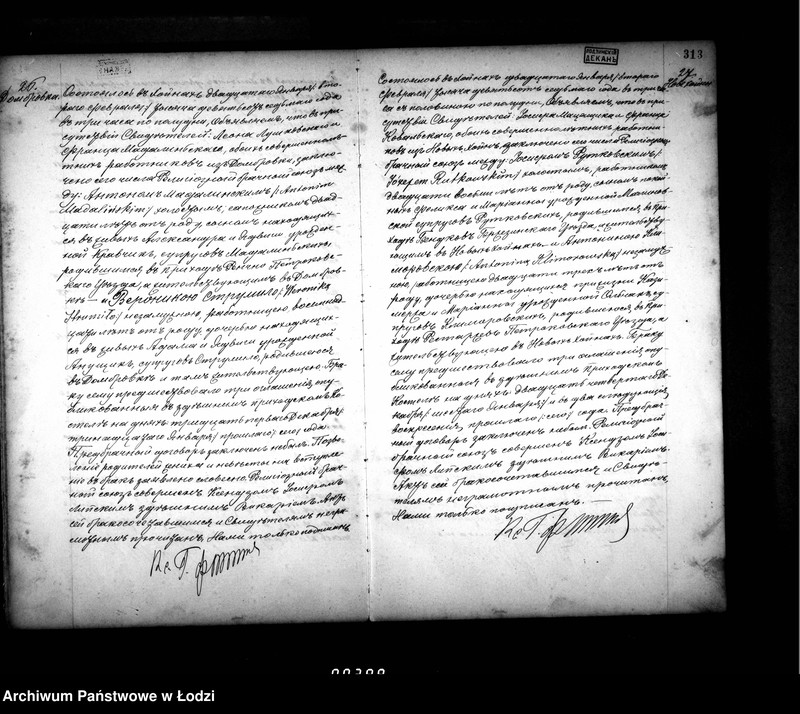 26.
Домбровка
Состоялось въ Хойнахъ двадцатаго Января/ вто-
раго Февраля/ тысяча девятьсотъ седьмаго года
въ три часа по полудни. Объявляемъ, что въ при-
сутствіи Свидѣтелей: Леона
Франца обоихъ совершенно-
лѣтнихъ работниковъ изъ Домбровки, заклю-
чено сего числа Религіозный брачный союзъ меж-
ду: Антономъ Мадалинскимъ /Antonim
Madalińskim/ холостымъ, двад-
цати лѣтъ отъ роду, сыномъ находящих-
ся въ живыхъ Александра и Ядвиги урожден-
ной Кравчикъ, супруговъ Мадалинскихъ,
родившимся въ приходѣ Петроков-
скаго Уѣзда, а жительствующимъ въ Домбров-
кѣ — и Вероникою Струмило /Weronika
Strumiło/ незамужнею, работницею восемнад-
цати лѣтъ отъ роду, дочерью находящих-
ся въ живыхъ Адама и Ядвиги урожденной
супруговъ Струмило, родившеюся
въ Домбровкѣ и тамъ жительствующею. Бра-
ку сему предшествовало три оглашенія опу-
бликованныя въ здѣшнемъ приходскомъ Ко-
стелѣ на дняхъ тридцать перваго Декабря/
тринадцатаго Января/ прошлаго /сего/ года.
Предбрачный договоръ заключенъ небылъ. Позво-
леніе родителей жениха и невѣсты на вступле-
ніе въ бракъ заявлено словесно. Религіозный брач-
ный союзъ совершенъ Ксендзомъ Іосифомъ
Липскимъ здѣшнимъ Викаріемъ. Актъ
сей бракосочетавшимся и Свидѣтелямъ негра-
мотнымъ прочитанъ, Нами только подписанъ
Кс. Г.
РАДЗИНСКІЙ
ДЕКАНЪ
313
27.
Новы Хойны
Состоялось въ Хойнахъ двадцатаго Января/ втораго
Февраля/ тысяча девятьсотъ седьмаго года въ три ча-
са съ половиною по полудни. Объявляемъ, что въ при-
сутствіи Свидѣтелей: Іосифа и Франца
Ковальскаго, обоихъ совершеннолѣтнихъ работни-
ковъ изъ Новыхъ Хойнъ, заключено сего числа Религіозный
брачный союзъ между: Іосифомъ Рутковскимъ /
Józefem Rutkowskim/ холостымъ, работникомъ
двадцати восьми лѣтъ отъ роду, сыномъ покой-
ныхъ Феликса и Маріанны урожденной
супруговъ Рутковскихъ, родившимся въ при-
ходѣ Бендковъ Брезинскаго Уѣзда, а жительству-
ющимъ въ Новыхъ Хойнахъ — и Антониною Кли-
маровскою /Antonina Klimorowska/ незамуж-
нею, работницею двадцати трехъ лѣтъ отъ
роду, дочерью находящихся при жизни Кази-
мержа и Маріанны урожденной су-
пруговъ Климаровскихъ, родившеюся въ при-
ходѣ Петроковскаго Уѣзда, а
жительствующею въ Новыхъ Хойнахъ. Браку
сему предшествовало три оглашенія опу-
бликованныя въ здѣшнемъ приходскомъ
Костелѣ на дняхъ: двадцать четвертаго Де-
кабря/ шестаго Января/ и въ два слѣдующія
воскресенія, прошлаго /сего/ года. Предбрач-
ный договоръ заключенъ небылъ. Религіозный
брачный союзъ совершенъ Ксендзомъ Іоси-
фомъ Липскимъ здѣшнимъ Викаріемъ.
Актъ сей бракосочетавшимся и Свидѣ-
телямъ неграмотнымъ прочитанъ,
Нами только подписанъ.
Кс. Г.
Archiwum Państwowe w Łodzi